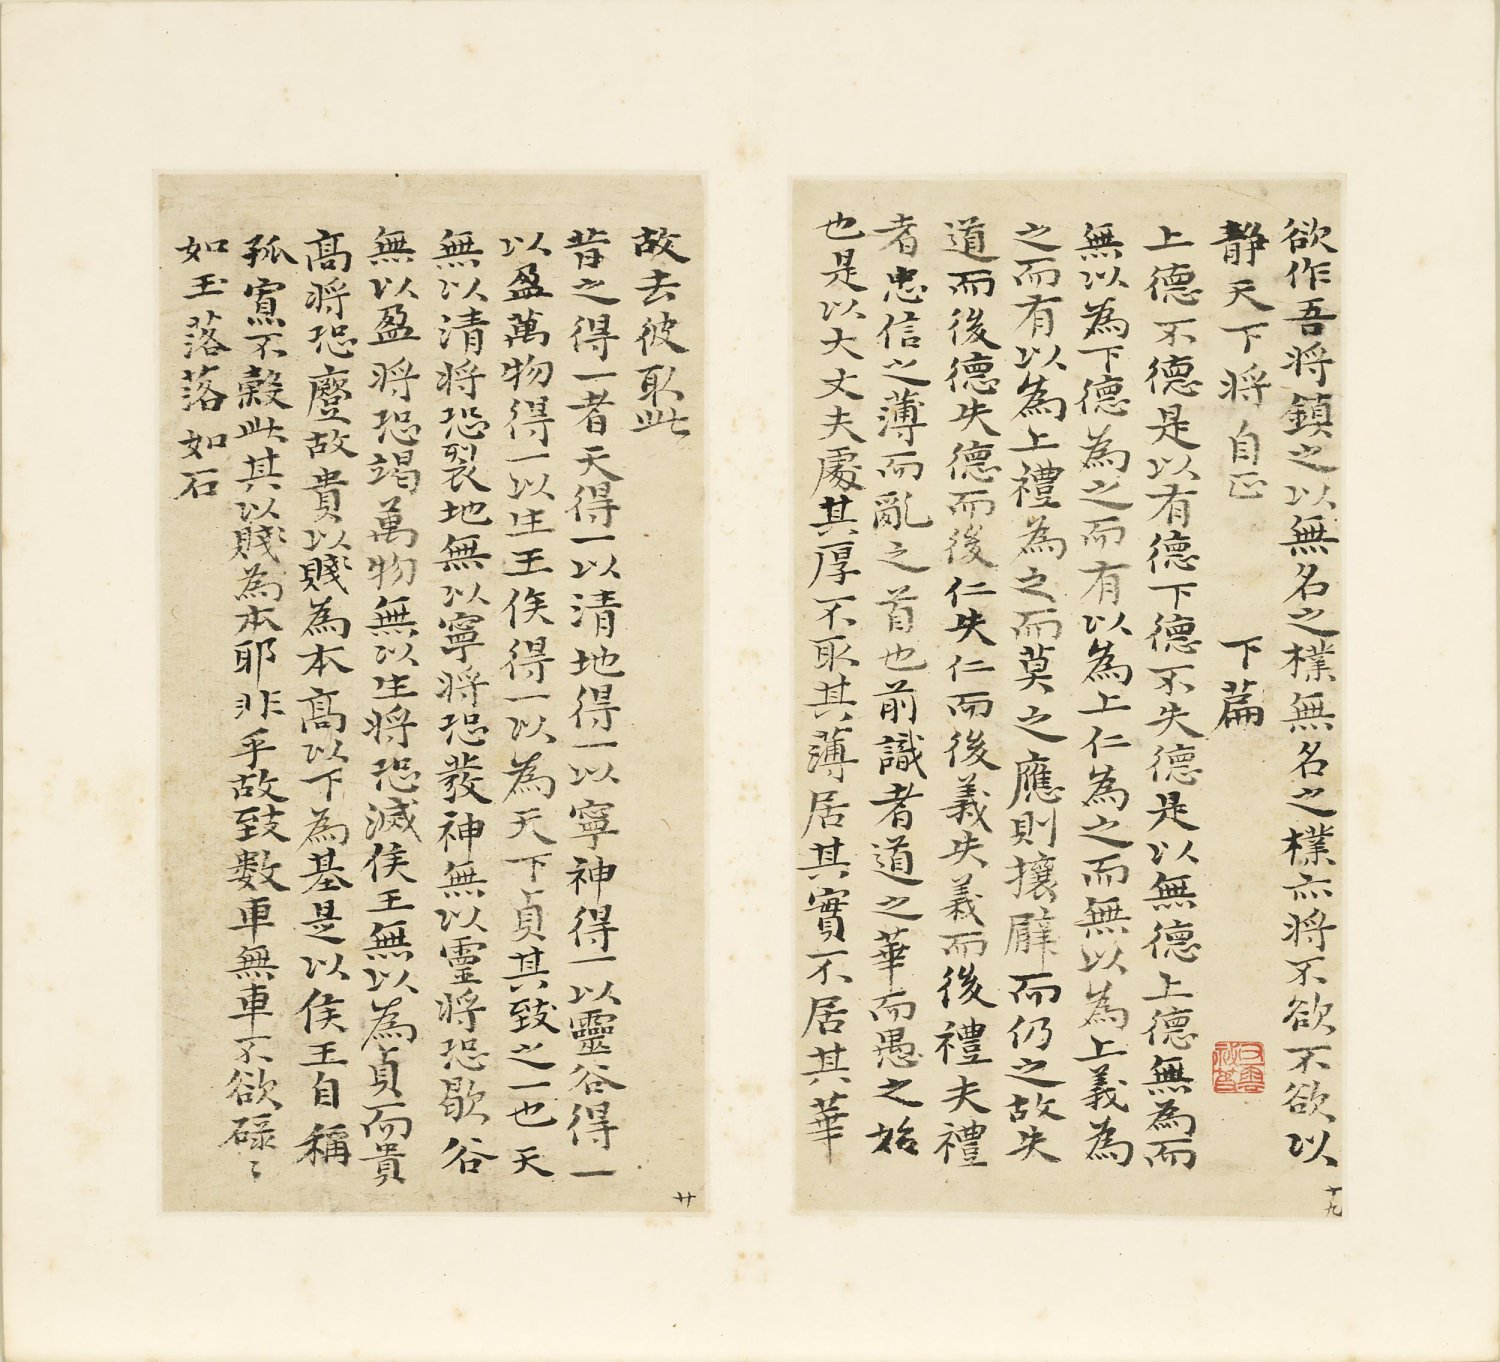 欲作吾将鎮之以無名之樸無名之樸亦将不欲不欲以
靜天下將自正 下篇
上德不德是以有德下德不失德是以無德上德無為而
無以為下德為之而有以為上仁為之而無以為上義為
之而有以為上禮為之而莫之應則攘臂而仍之故失
道而後德失德而後仁失仁而後義失義而後禮夫禮
者忠信之薄而亂之首也前識者道之華而愚之始
也是以大丈夫處其厚不取其薄居其實不居其華
十九
故去彼取此
昔之得一者天得一以清地得一以寧神得一以靈谷得一
以盈萬物得一以生王侯得一以為天下貞其致之一也天
無以清将恐裂地無以寧将恐發神無以靈将恐歇谷
無以盈将恐竭萬物無以生将恐滅侯王無以為貞而貴
高将恐蹷故貴以賤為本高以下為基是以侯王自稱
孤寡不穀此其以賤為本耶非乎故致數車無車不欲碌〻
如玉落落如石
廿